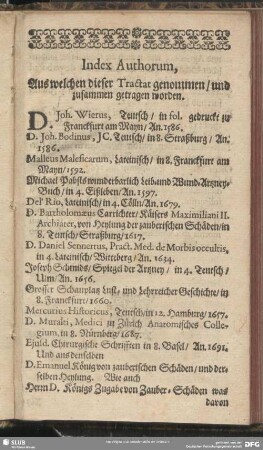 Index Authorum,
Aus welchen dieser Tractat genommen/ und
zusammen getragen worden.
D. Joh. Wierus, Teutsch/ in fol. gedruckt zu
Franckfurt am Mayn/ An. 1586.
D. Joh. Bodinus, JC. Teutsch/ in 8. Straßburg/ An.
1586.
Malleus Maleficarum, Lateinisch/ in 8. Franckfurt am
Mayn/ 1592.
Michael Pabsts wunderbarlich Leib und Wund-Artzney-
Buch/ in 4. Eißleben/ An. 1597.
Del' Rio, Lateinisch/ in 4. Cölln/ An. 1679.
D. Bartholomæus Carrichter/ Käisers Maximiliani II.
Archiater, von Heylung der zauberischen Schäden/ in
8. Teutsch/ Straßburg/ 1617.
D. Daniel Sennertus, Pract. Med. de Morbis occultis,
in 4. Lateinisch/ Witteberg/ An. 1634.
Joseph Schmids/ Spiegel der Artzney/ in 4. Teutsch/
Ulm/ An. 1656.
Grosser Schauplatz Lust- und Lehrreicher Geschichte/ in
8. Franckfurt/ 1660.
Mercurius Historicus, Teutsch/ in 12. Hamburg/ 1657.
D. Muralti, Medici zu Zürich Anatomisches Colle-
gium, in 8. Nürnberg/ 1687.
Ejusd. Chirurgische Schrifften in 8. Basel/ An. 1691.
Und aus denselben
D. Emanuel König von zauberischen Schäden/ und der-
selben Heylung. Wie auch
Herrn D. Königs Zugabe von Zauber-Schäden was
davon
SLUB